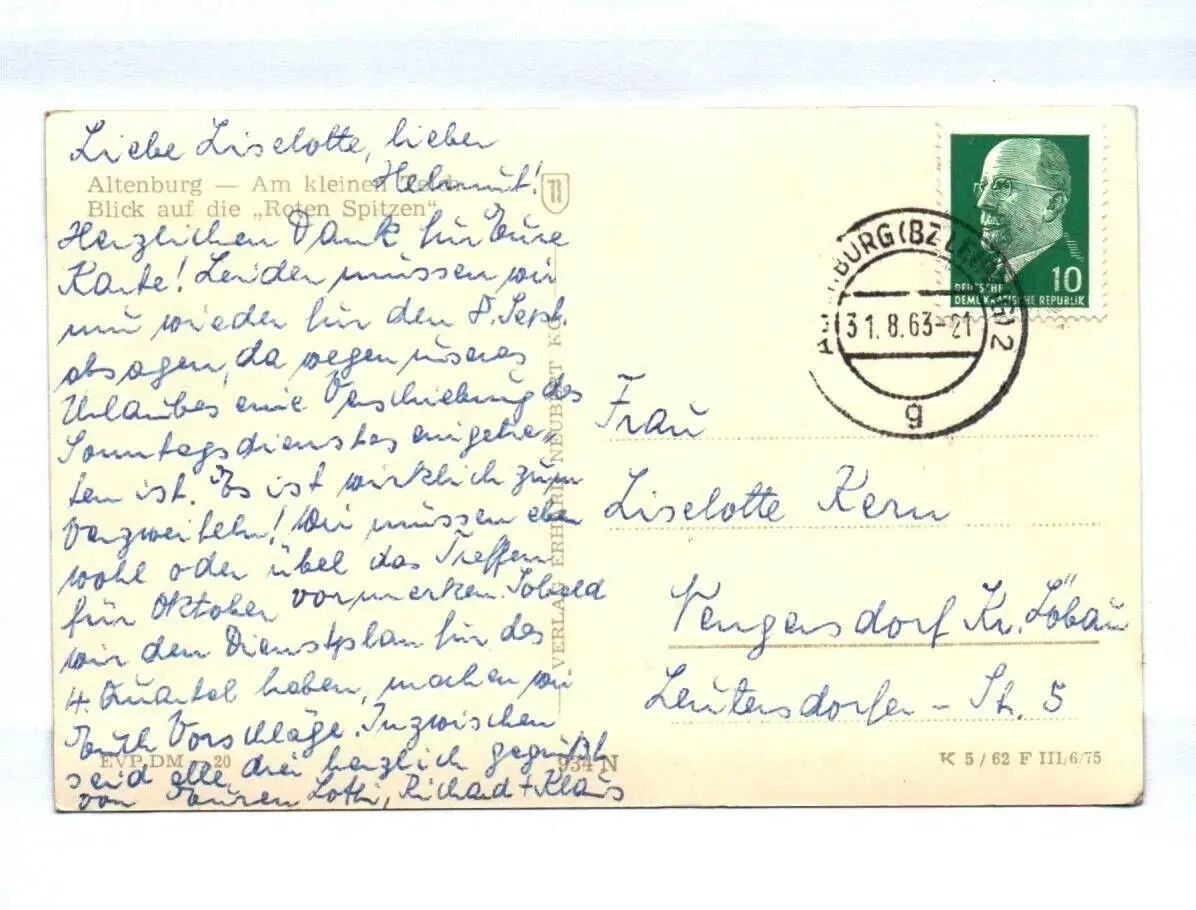 Liebe Liselotte, lieber
Helmut!
Altenburg — Am kleinen Teich
Blick auf die „Roten Spitzen"
Herzlichen Dank für Eure
Karte! Leider müssen wir
nun wieder für den 8. Sept.
absagen, da wegen unseres
Urlaubes eine Verschiebung des
Sonntagsdienstes eingetre-
ten ist. Es ist wirklich zum
Verzweifeln! Wir müssen eben
wohl oder übel das Treffen
für Oktober vormerken. Sobald
wir den Dienstplan für das
4. Quartal haben, machen wir
Euch Vorschläge. Inzwischen
seid alle drei herzlich gegrüßt
von Euren Lothi, Richard + Klaus
EVP DM 20
934 N
VERLAG ERHARD NEUBERT KG
10
DEUTSCHE
DEMOKRATISCHE REPUBLIK
ALTENBURG (BZ LEIPZIG) 2
31.8.63-21
g
Frau
Liselotte Kern
Neugersdorf Kr. Löbau
Leutersdorfer - Str. 5
K 5/62 F III/6/75